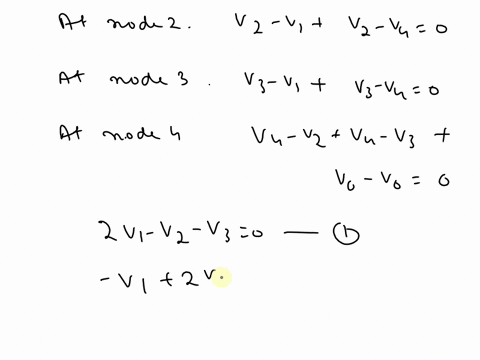 At node 2. V2 - V1 + V2 - V4 = 0
At node 3. V3 - V1 + V3 - V4 = 0
At node 4 V4 - V2 + V4 - V3 +
V0 - V0 = 0
2V1 - V2 - V3 = 0 — ①
- V1 + 2V